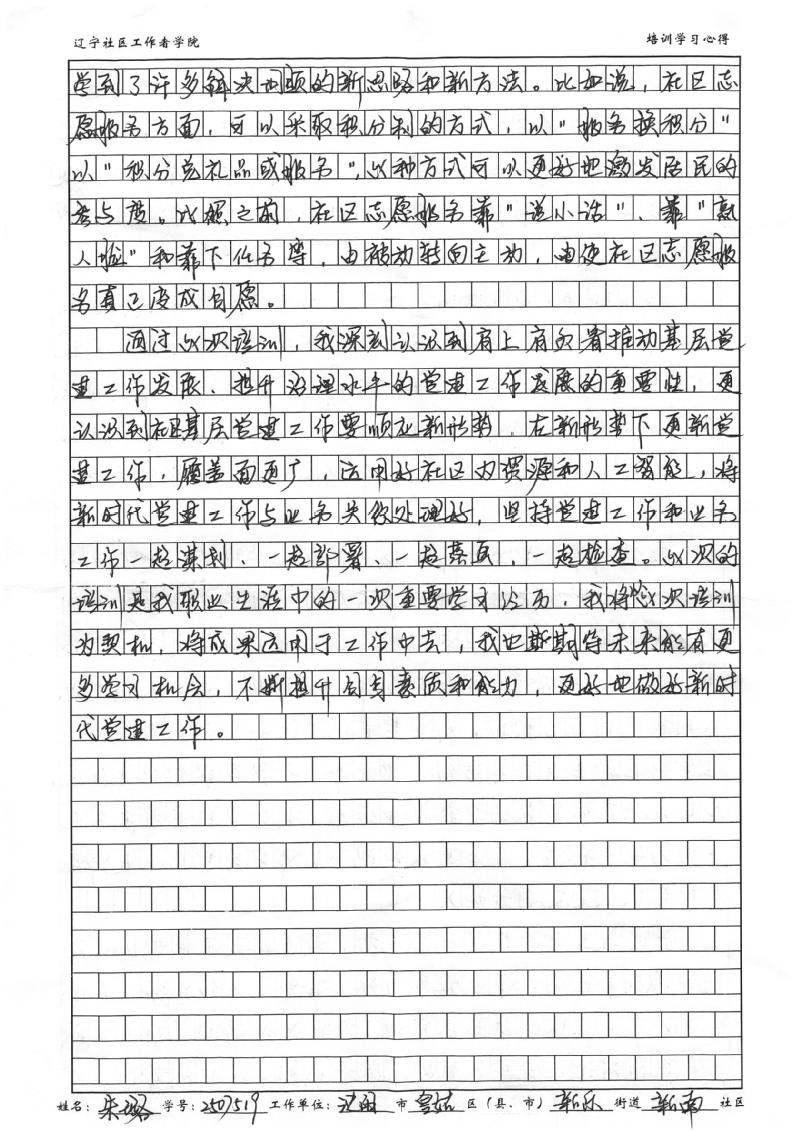 辽宁社区工作者学院 培训学习心得
学到了许多解决问题的新思路和新方法。比如说，社区志
愿服务方面，可以采取积分制的方式，以"服务换积分"
以"积分兑礼品或服务"，此种方式可以更好地激发居民的
参与度。比照之前，社区志愿服务靠"说小话"、靠"熟
人脸"和靠下任务等，由被动转向主动，由使社区志愿服
务真正变成自愿。
通过此次培训，我深刻认识到有上有效着推动基层党
建工作发展、提升治理水平的党建工作发展的重要性，更
认识到社区基层党建工作要顺应新形势，在新形势下更新党
建工作，覆盖面更广，运用好社区内资源和人工智能，将
新时代党建工作与业务关系处理好，坚持党建工作和业务
工作一起谋划、一起部署、一起落实、一起检查。此次的
培训是我职业生涯中的一次重要学习经历，我将以此次培训
为契机，将成果运用于工作中去，我也期待未来能有更
多学习机会，不断提升自身素质和能力，更好地做好新时
代党建工作。
姓名：朱璐 学号：2507519 工作单位：沈阳 市 皇姑 区（县、市） 新乐 街道 新南 社区